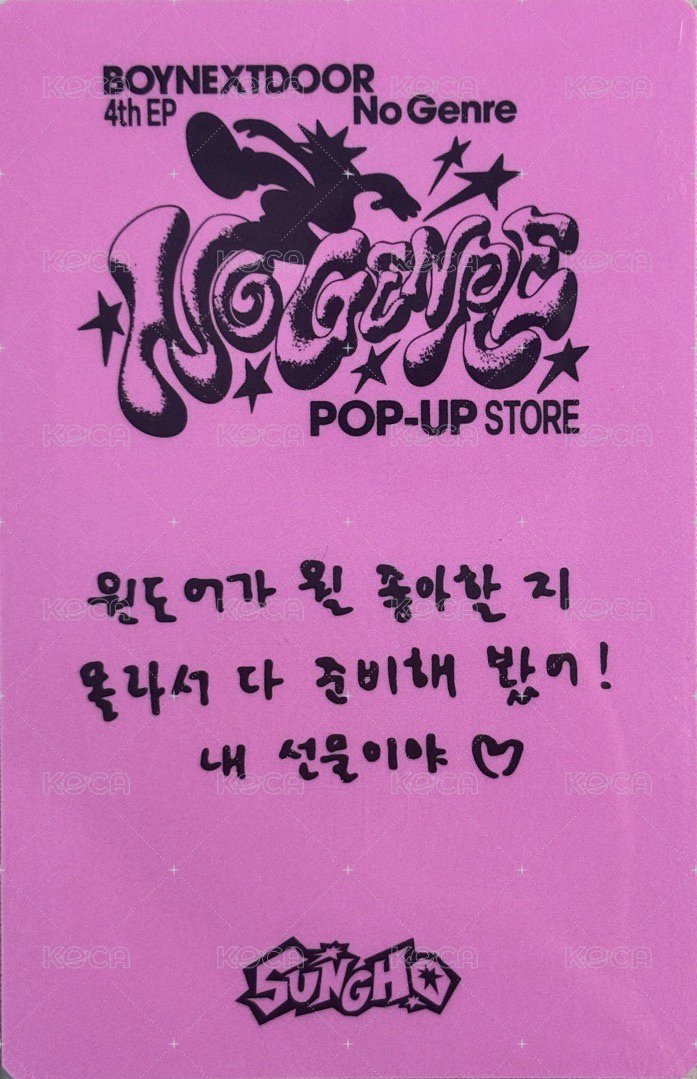 BOYNEXTDOOR
4th EP No Genre
NO GENRE
POP-UP STORE
원도어가 뭘 좋아할 지
몰라서 다 준비해 봤어!
내 선물이야 ♡
SUNGHO
KOCA